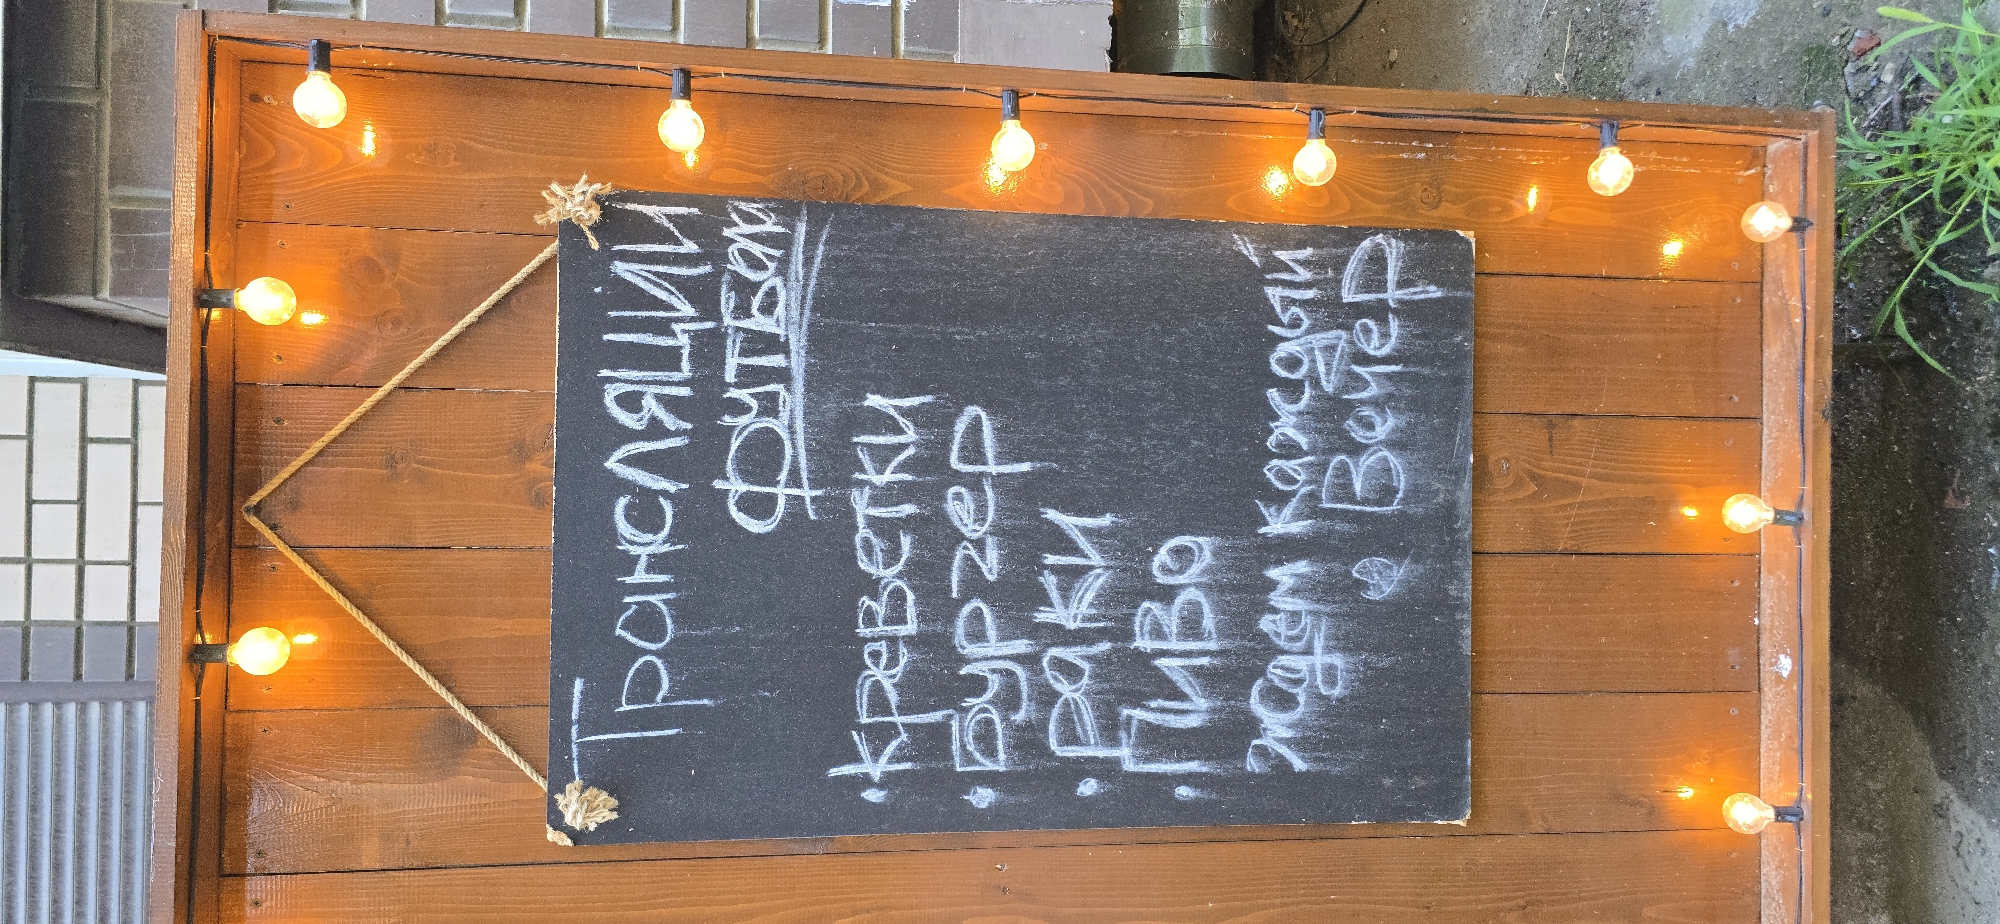 Трансляции
футбола
• Креветки
• Бургер
• Раки
• Пиво
ждем каждый
Вечер